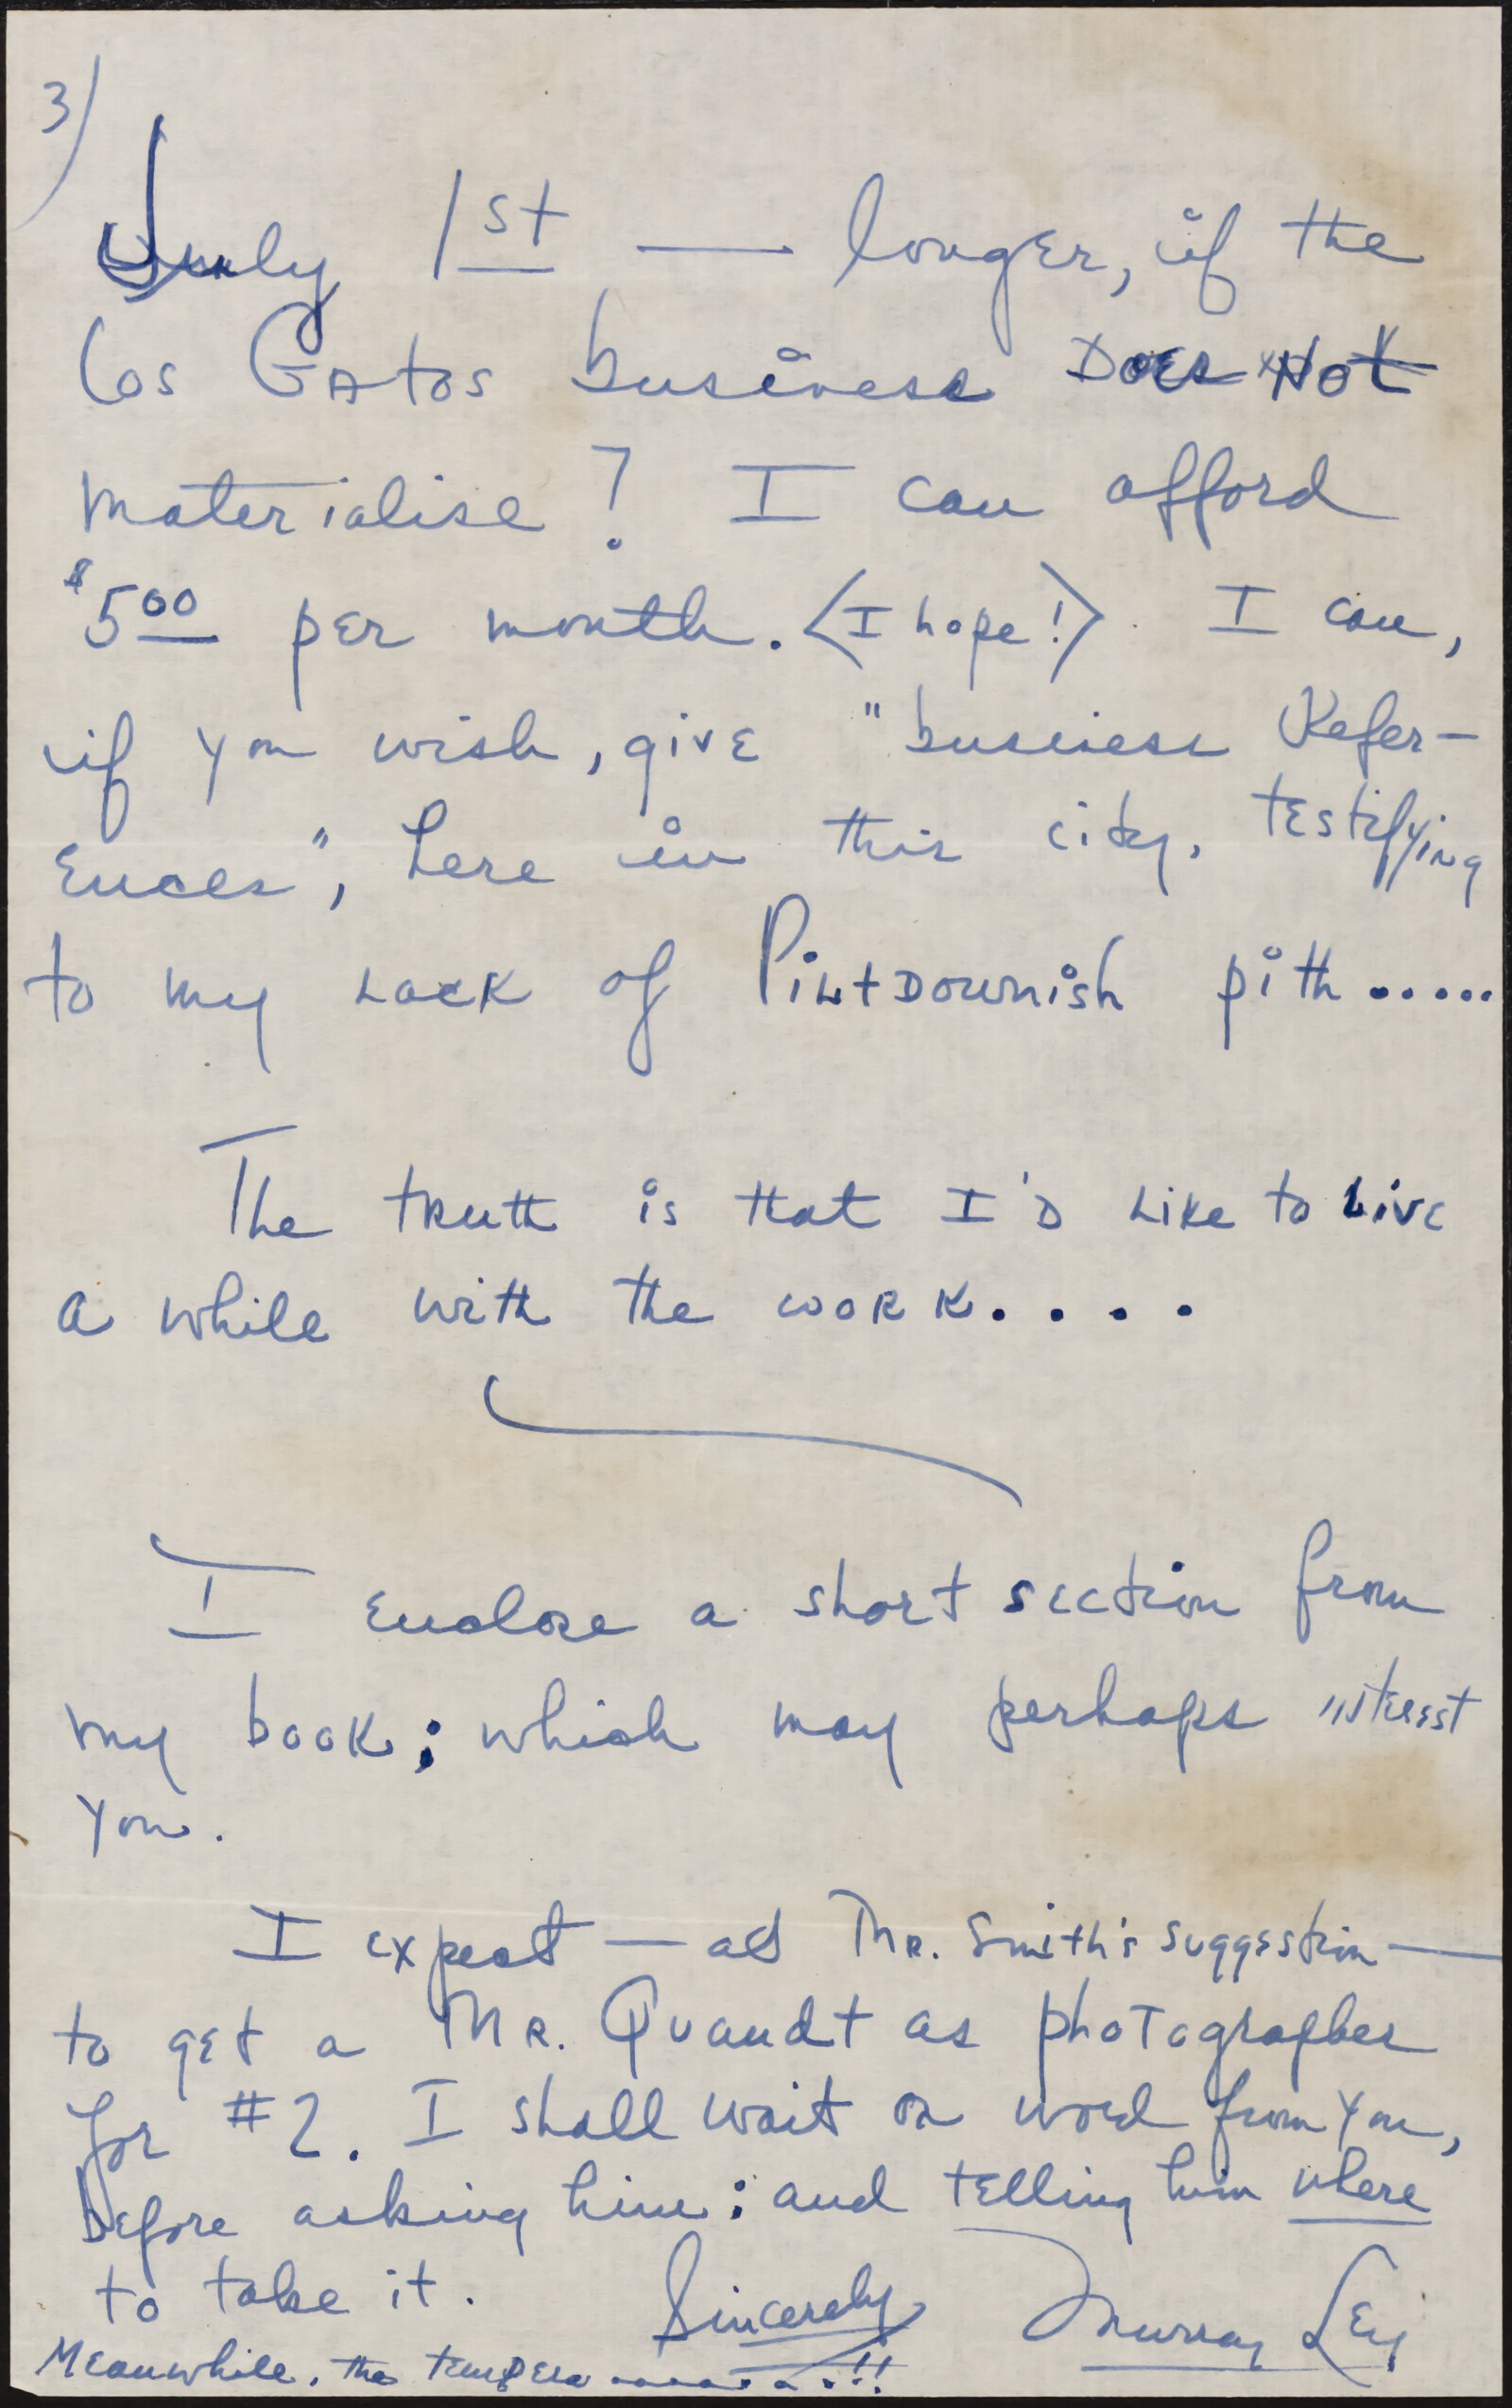 3)
July 1st — longer, if the
Los Gatos business Does Not
materialise? I can afford
$5 00 per month. <I hope!>. I can,
if you wish, give "business Refer-
ences", here in this city, testifying
to my Lack of PiltDownish pith.....
The truth is that I'D Like to Live
a while with the work....
I enclose a short section from
my book; which may perhaps interest
you.
I expect — at Mr. Smith's suggestion —
to get a Mr. Quandt as photographer
for #2. I shall wait on word from you,
before asking him: and telling him where
to take it.
Sincerely Murray
Meanwhile, the tempera ........!!